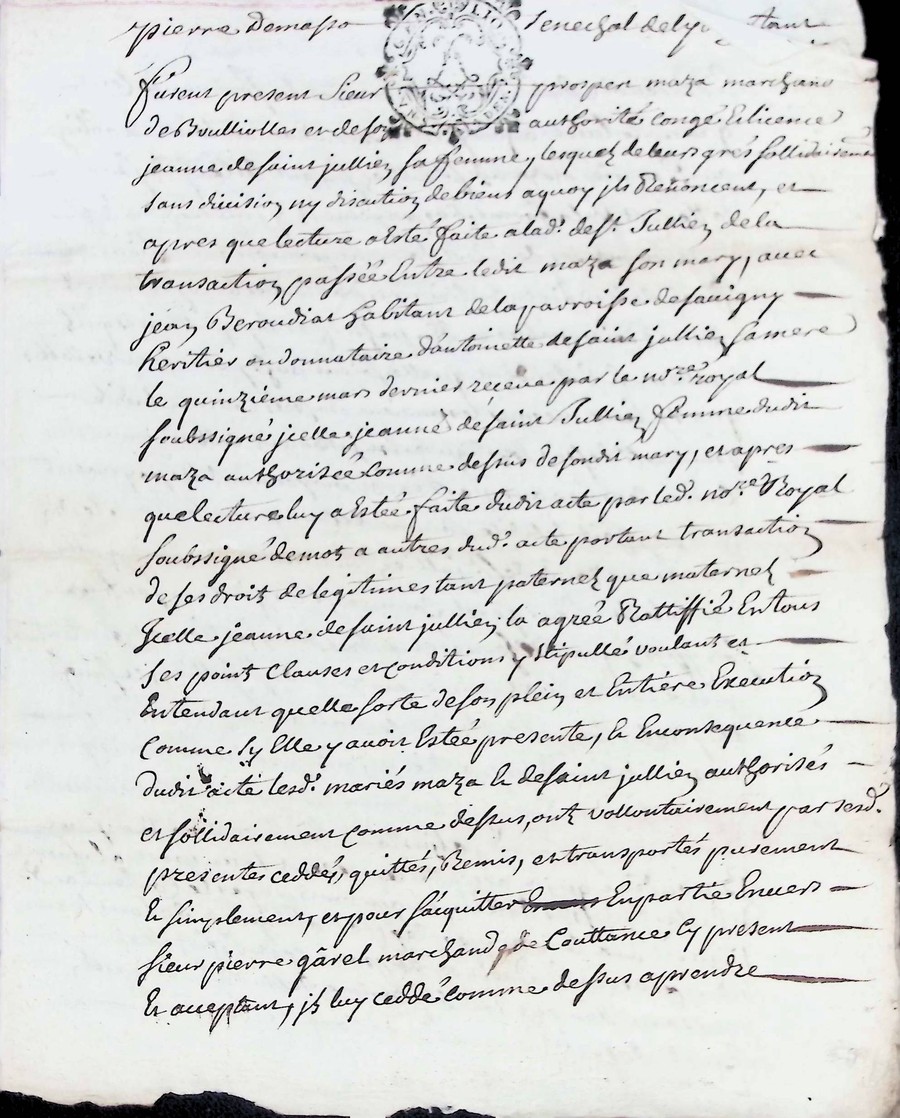 pierre Demasso Senechal de lyo tant
furent present Sieur prosper maza marchand
de Boulliollas et de soy authorité congé Et licence
jeanne de saint jullien sa femme, lesquels de leurs grés sollidairement
sans division ny discution de biens aquoy jls Renoncent, et
apres que lecture a Esté faite alad.e de st. Jullien de la
transaction passée Entre ledit maza son mary, avec
jean Beroudiat habitant de la parroisse de savigny
heritier ou donnataire d'antoinette de saint jullien sa mere
le quinziéme mars dernier receue par le no.re royal
soubssigné jcelle jeanne de saint Jullien femme dudit
maza authorisée Comme dessus de sondit mary, et apres
que lecture luy a Estée faite dudit acte par led. no.re Royal
soubssigné de mot a autres dud. acte portant transaction
de ses droits de legitimes tant paternels que maternels
Jcelle jeanne de saint jullien la agréé Rattiffié En tous
ses points Clauses et conditions y stipullés voulant et
Entendant quelle sorte de son plein et Entiére Execution
Comme sy Elle y avoit Estée presente, Et En consequence
dudit acte lesd. mariés maza Et de saint jullien authorisés
et sollidairement comme dessus, onts vollontairement par sesd.
presentes ceddés, quittés, Remis, et transportés purement
Et simplement, et pour sacquitter En partie Envers
sieur pierre gârel marchand de Couttance Cy present
Et acceptant, jls luy ceddé comme dessus aprendre